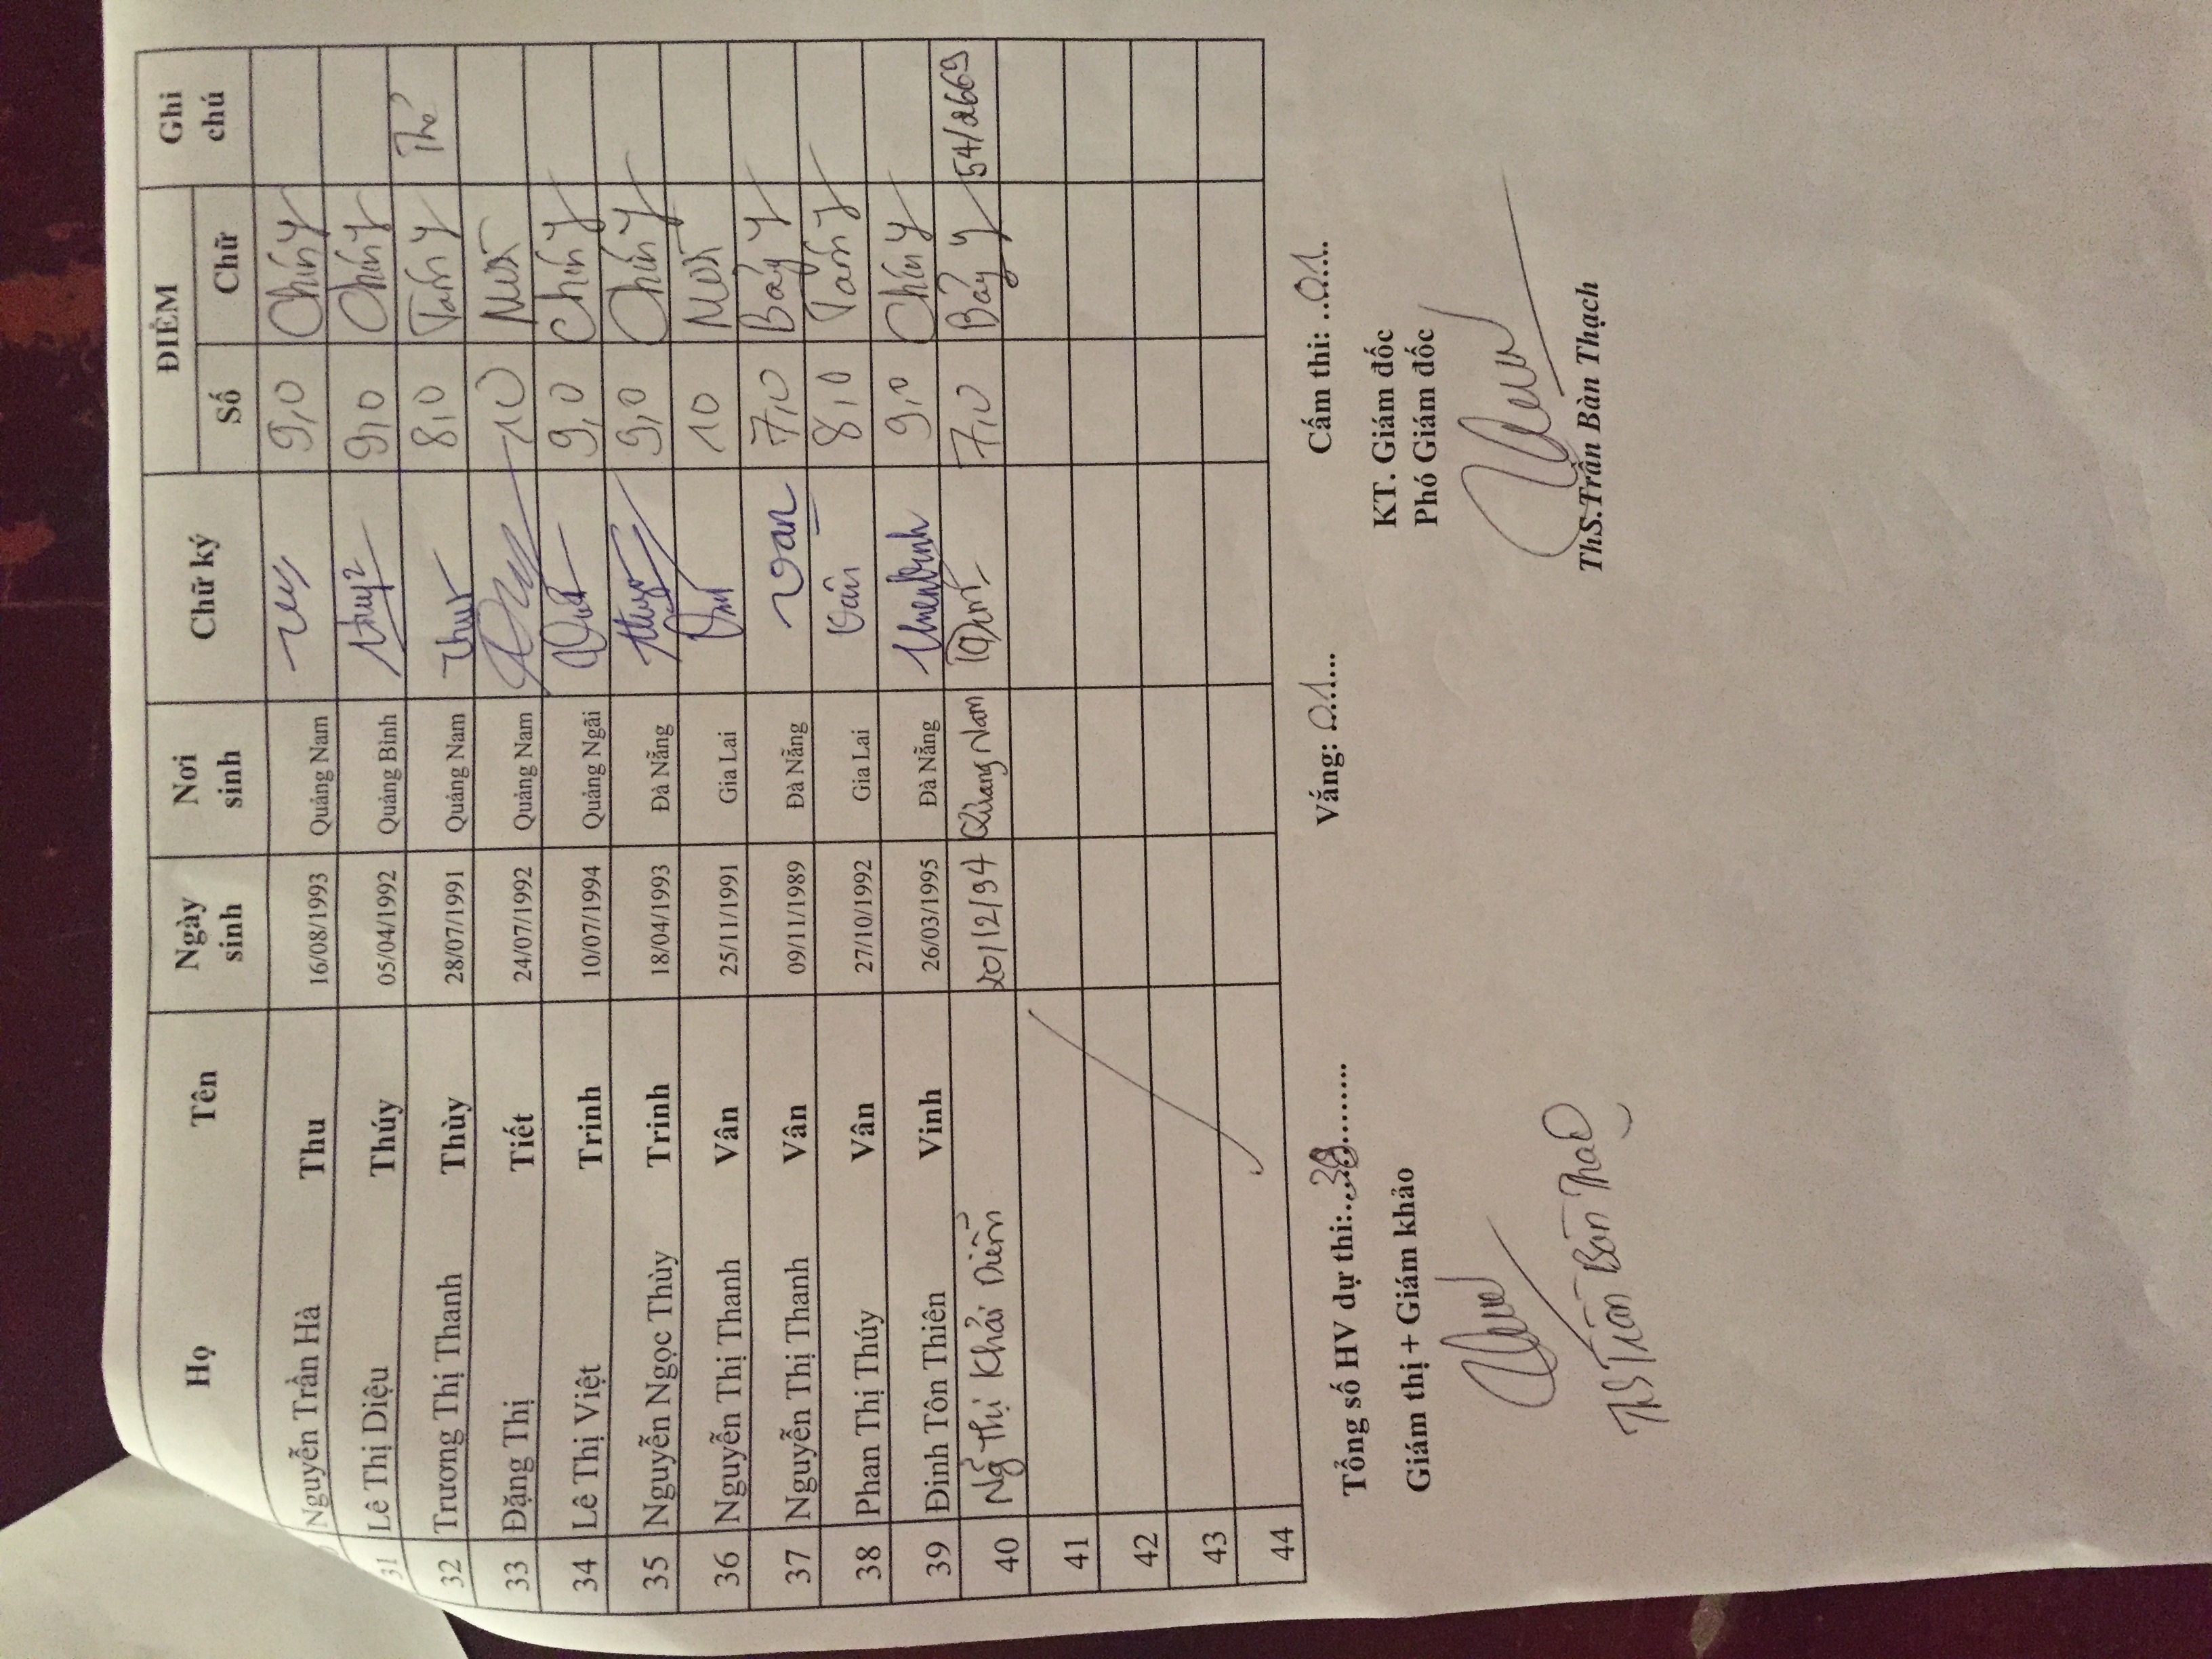 Họ Tên Ngày sinh Nơi sinh Chữ ký ĐIỂM Ghi chú
Số Chữ
Nguyễn Trần Hà Thu 16/08/1993 Quảng Nam 9,0 Chín
31 Lê Thị Diệu Thúy 05/04/1992 Quảng Bình Thuý 9,0 Chín
32 Trương Thị Thanh Thùy 28/07/1991 Quảng Nam 8,0 Tám
33 Đặng Thị Tiết 24/07/1992 Quảng Nam 10 Mười
34 Lê Thị Việt Trinh 10/07/1994 Quảng Ngãi 9,0 Chín
35 Nguyễn Ngọc Thùy Trinh 18/04/1993 Đà Nẵng 9,0 Chín
36 Nguyễn Thị Thanh Vân 25/11/1991 Gia Lai 10 Mười
37 Nguyễn Thị Thanh Vân 09/11/1989 Đà Nẵng Van 7,0 Bảy
38 Phan Thị Thúy Vân 27/10/1992 Gia Lai Vân 8,0 Tám
39 Đinh Tôn Thiên Vinh 26/03/1995 Đà Nẵng 9,0 Chín
40 Ng Thị Khải Diễm 20/12/94 Quảng Nam 7,0 Bảy 54/2669
41
42
43
44
Tổng số HV dự thi: Vắng: 01 Cấm thi: 01
Giám thị + Giám khảo KT. Giám đốc
Phó Giám đốc
ThS Trần Bàn Thạch ThS.Trần Bàn Thạch